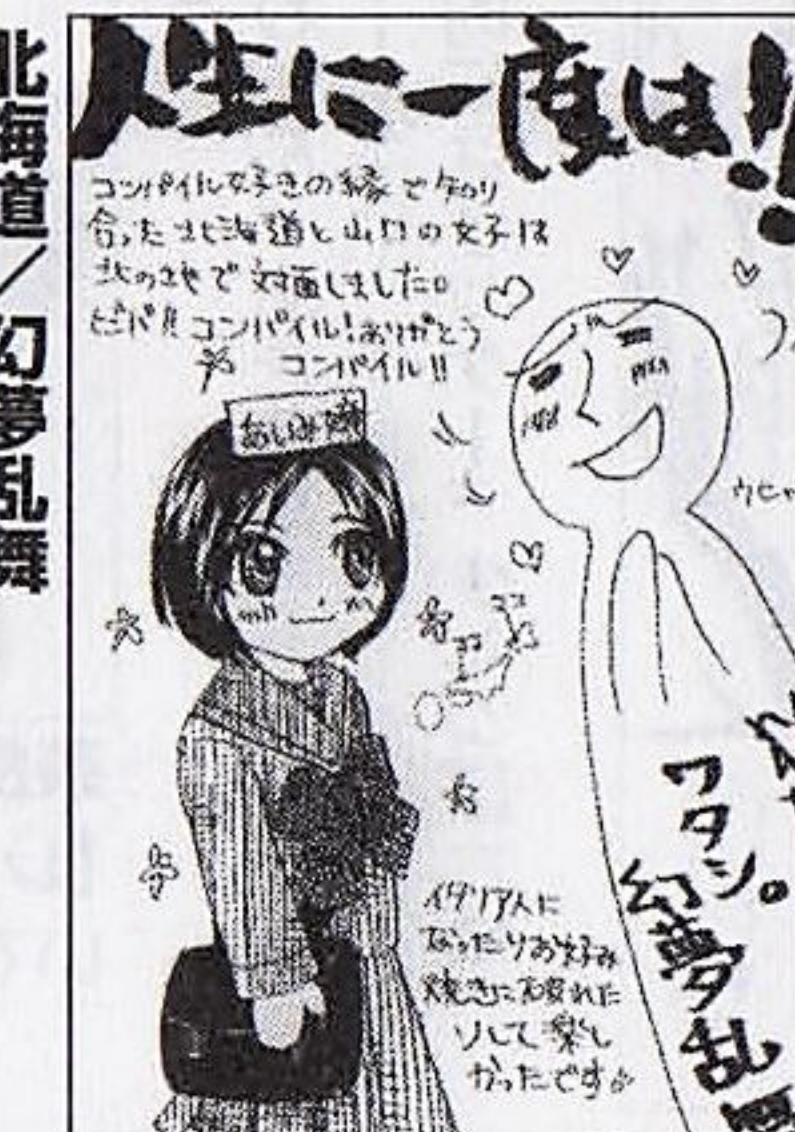 北海道／幻夢乱舞
人生に一度は!!
コンパイル好きの縁で知り
合った北海道と山口の女子は
北の地で対面しました。
ビバ!!コンパイル!ありがとう
コンパイル!!
ウヒャ
ワタシ。
幻夢乱
イタリア人に
なったりお好み
焼きに破れた
りして楽し
かったです